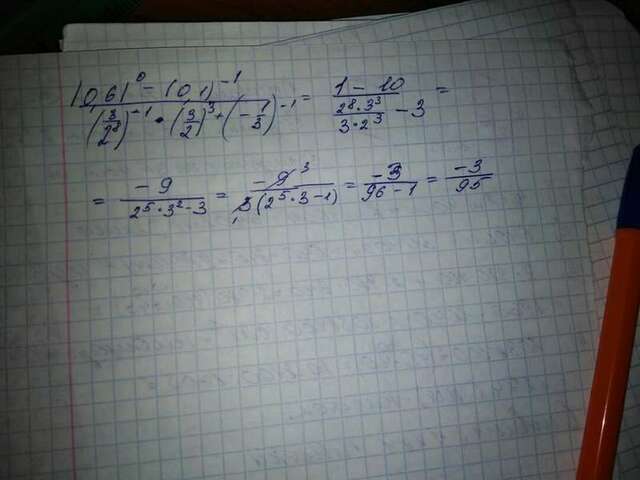 (06)⁰ - (01)⁻¹ / (3/2⁸)⁻¹ • (3/2)³ + (-1/3)⁻¹ = 1 - 10 / (2⁸ • 3³ / 3 • 2³ - 3) =
= -9 / 2⁵ • 3² - 3 = -9 3 / 3 1 (2⁵ • 3 - 1) = -3 / 96 - 1 = -3 / 95